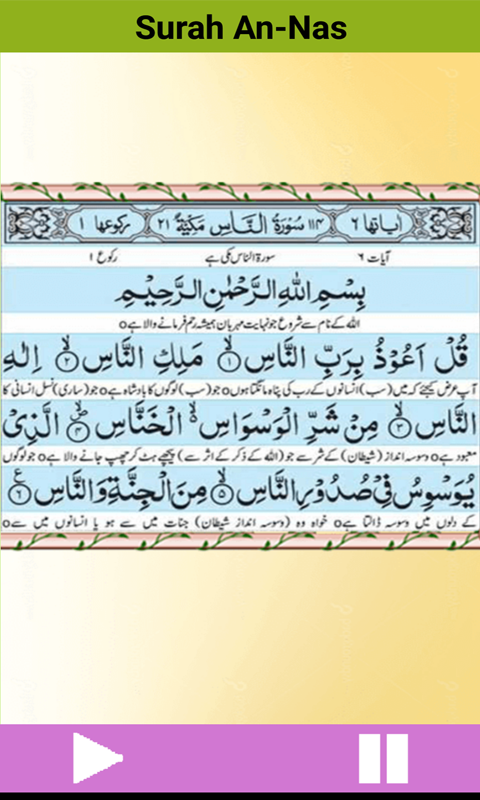 Surah An-Nas
اٰیاتھا ٦ ١١٤ سُوْرَةُ النَّاسِ مَكِّیَّةٌ ٢١ رکوعھا ١
آیات ٦ سورۃ الناس مکی ہے رکوع ١
بِسْمِ اللّٰهِ الرَّحْمٰنِ الرَّحِیْمِ
اللہ کے نام سے شروع جو نہایت مہربان ہمیشہ رحم فرمانے والا ہے o
قُلْ اَعُوْذُ بِرَبِّ النَّاسِ ۙ﴿١﴾ مَلِكِ النَّاسِ ۙ﴿٢﴾ اِلٰهِ
آپ عرض کیجئے کہ میں (سب) انسانوں کے رب کی پناہ مانگتا ہوں o جو (سب) لوگوں کا بادشاہ ہے o جو (ساری) نسل انسانی کا
النَّاسِ ۙ﴿٣﴾ مِنْ شَرِّ الْوَسْوَاسِ ۙ۬ الْخَنَّاسِ ۪ۙ﴿٤﴾ الَّذِیْ
معبود ہے o وسوسہ انداز (شیطان) کے شر سے جو (اللہ کے ذکر کے اثر سے) پیچھے ہٹ کر چھپ جانے والا ہے o جو لوگوں
یُوَسْوِسُ فِیْ صُدُوْرِ النَّاسِ ۙ﴿٥﴾ مِنَ الْجِنَّةِ وَالنَّاسِ ﴿٦﴾ ع
کے دلوں میں وسوسہ ڈالتا ہے o خواہ وہ (وسوسہ انداز شیطان) جنات میں سے ہو یا انسانوں میں سے o